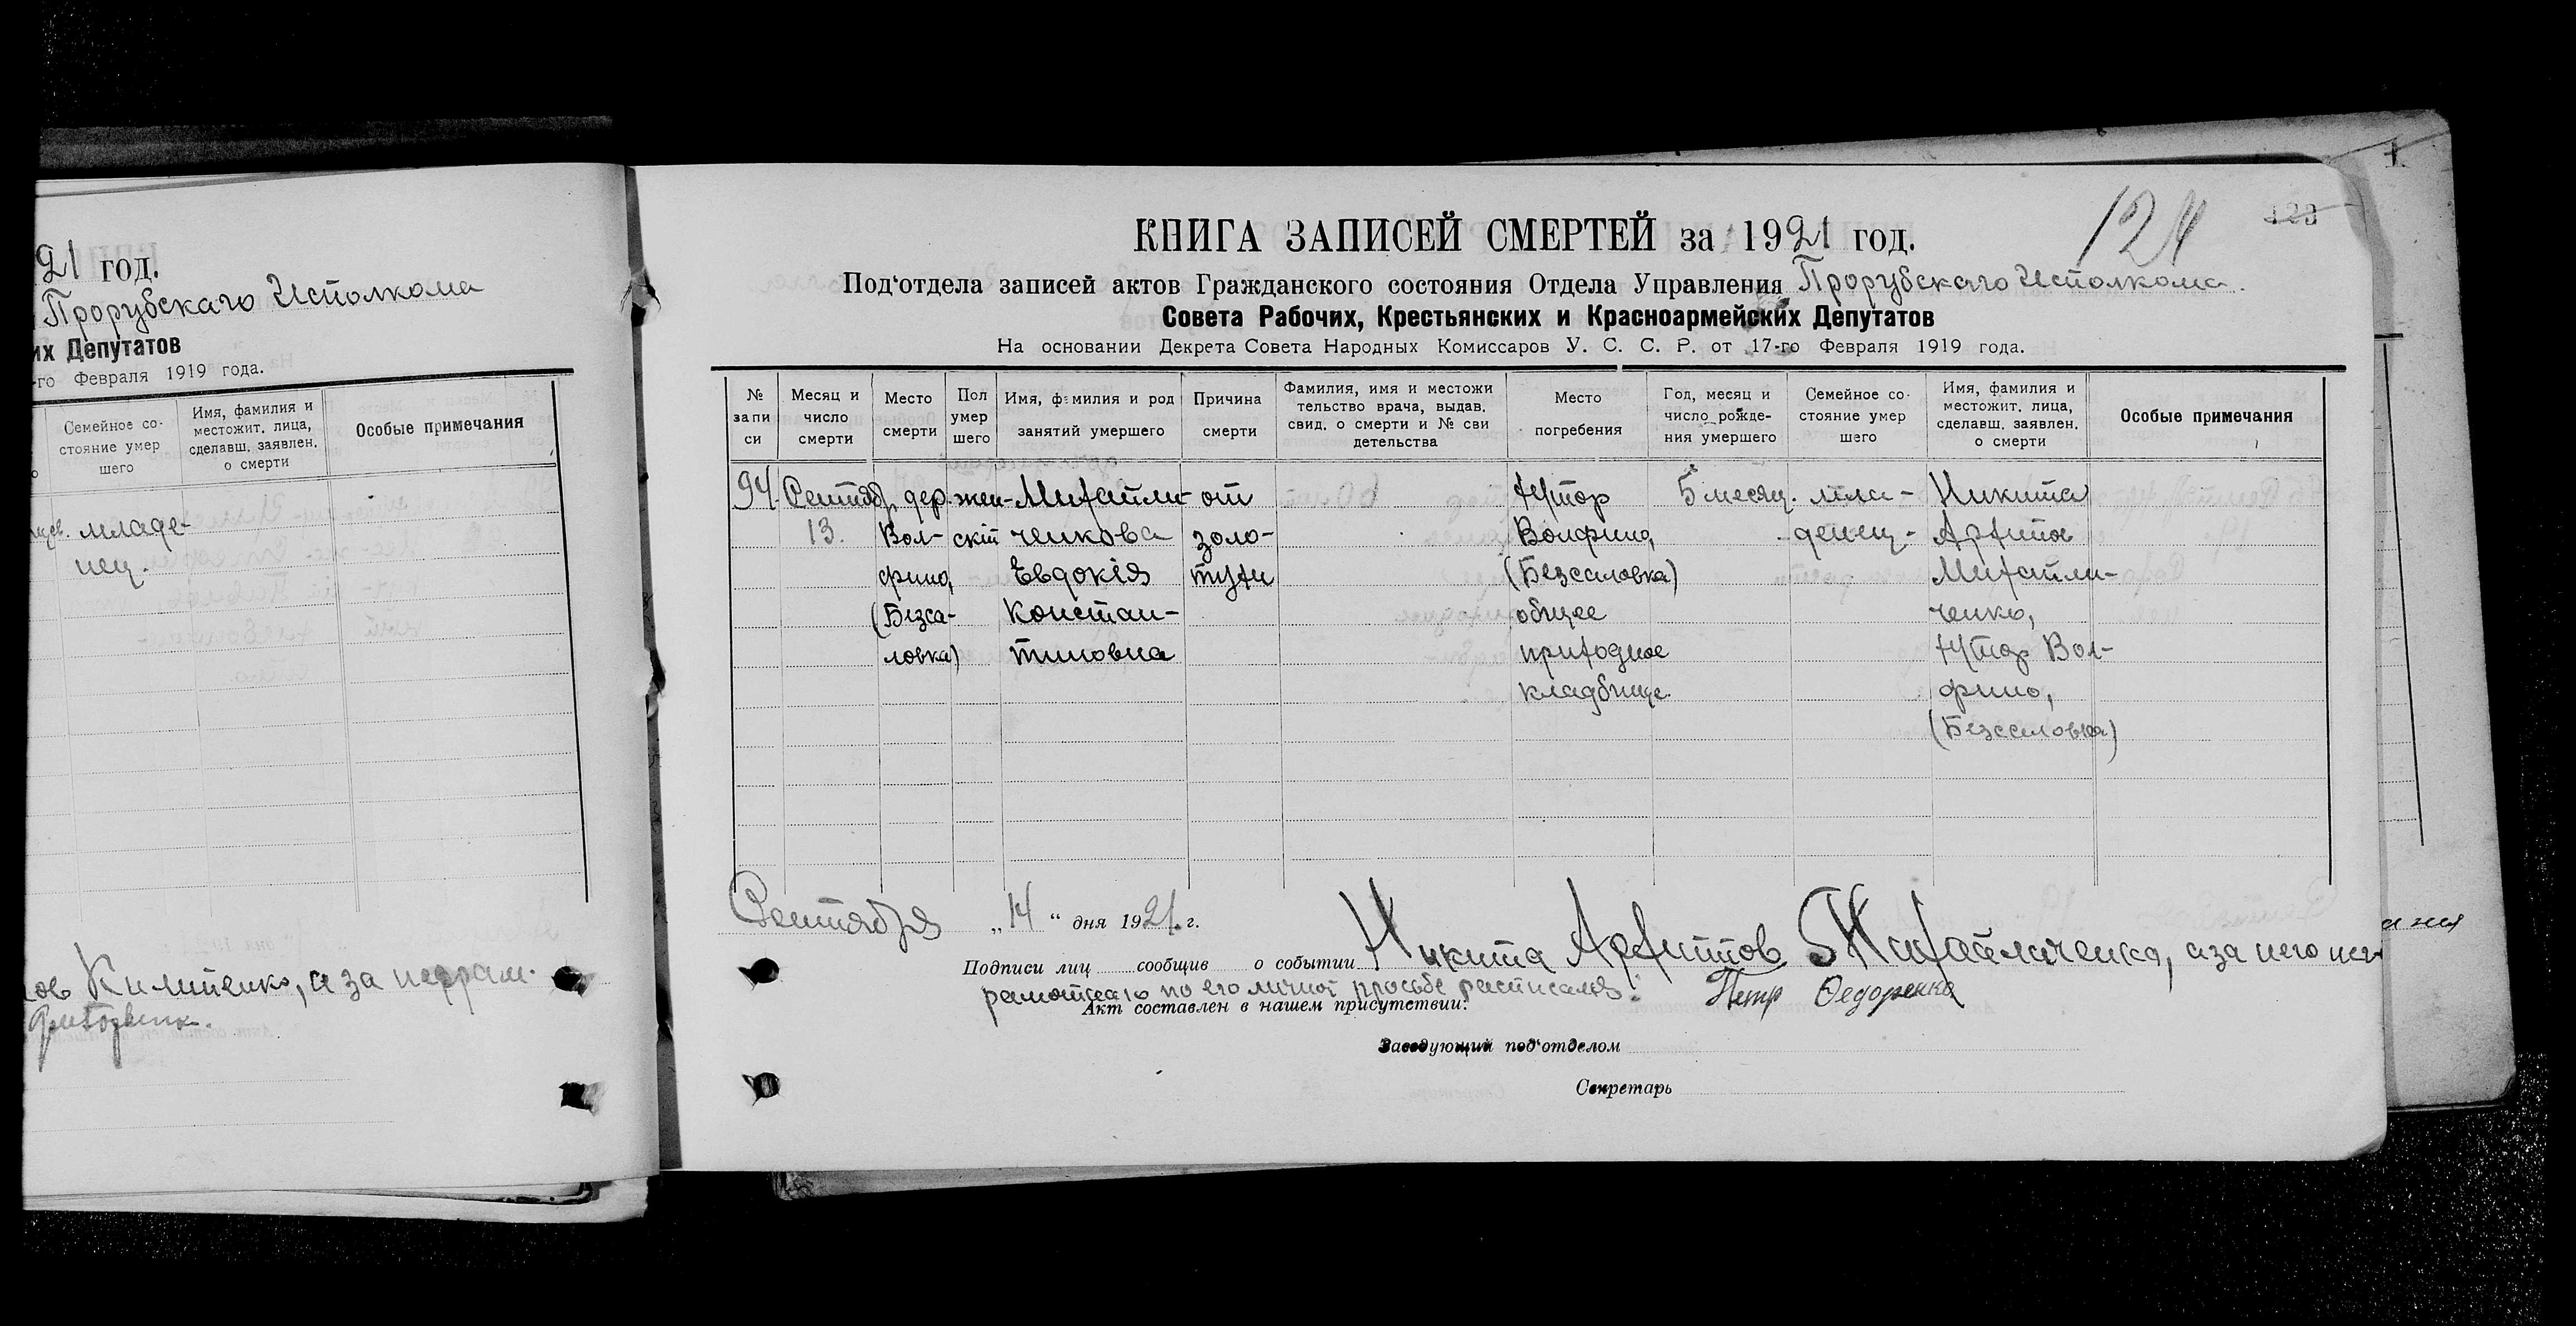 21 год.
Прорубскаго Исполкома
их Депутатов
-го Февраля 1919 года.
Семейное со-
стояние умер
шего
Имя, фамилия и
местожит. лица,
сделавш. заявлен.
о смерти
Особые примечания
младе-
нец.
ов Климпенко, а за неграм.
124
123
КНИГА ЗАПИСЕЙ СМЕРТЕЙ за 1921 год.
Под‘отдела записей актов Гражданского состояния Отдела Управления Прорубскаго Исполкома.
Совета Рабочих, Крестьянских и Красноармейских Депутатов
На основании Декрета Совета Народных Комиссаров У. С. С. Р. от 17-го Февраля 1919 года.
№
запи
си
Месяц и
число
смерти
Место
смерти
Пол
умер
шего
Имя, фамилия и род
занятий умершего
Причина
смерти
Фамилия, имя и местожи
тельство врача, выдав.
свид. о смерти и № сви
детельства
Место
погребения
Год, месяц и
число рожде-
ния умершего
Семейное со-
стояние умер
шего
Имя, фамилия и
местожит. лица,
сделавш. заявлен.
о смерти
Особые примечания
94.
Сентяб,
13.
дер.
Вол-
фино,
(Безса-
ловка)
жен-
скій
Михайли-
ченкова
Евдокія
Констан-
тиновна
от
золо-
тухи
хутор
Волфино,
(Безсаловка)
общее
приходное
кладбище.
5 месяц.
мла-
денец-
Никита
Архипов
Михайли-
ченко,
хутор Вол-
фино,
(Безсаловка)
Сентября „14“ дня 1921. г.
Подписи лиц сообщив о событии Никита Архиппов Михайличенко, а за него нег-
рамотнаго по его личной просьбе расписался: Петр Федоренко
Акт составлен в нашем присутствии:
Заведующий под‘отделом
Секретарь